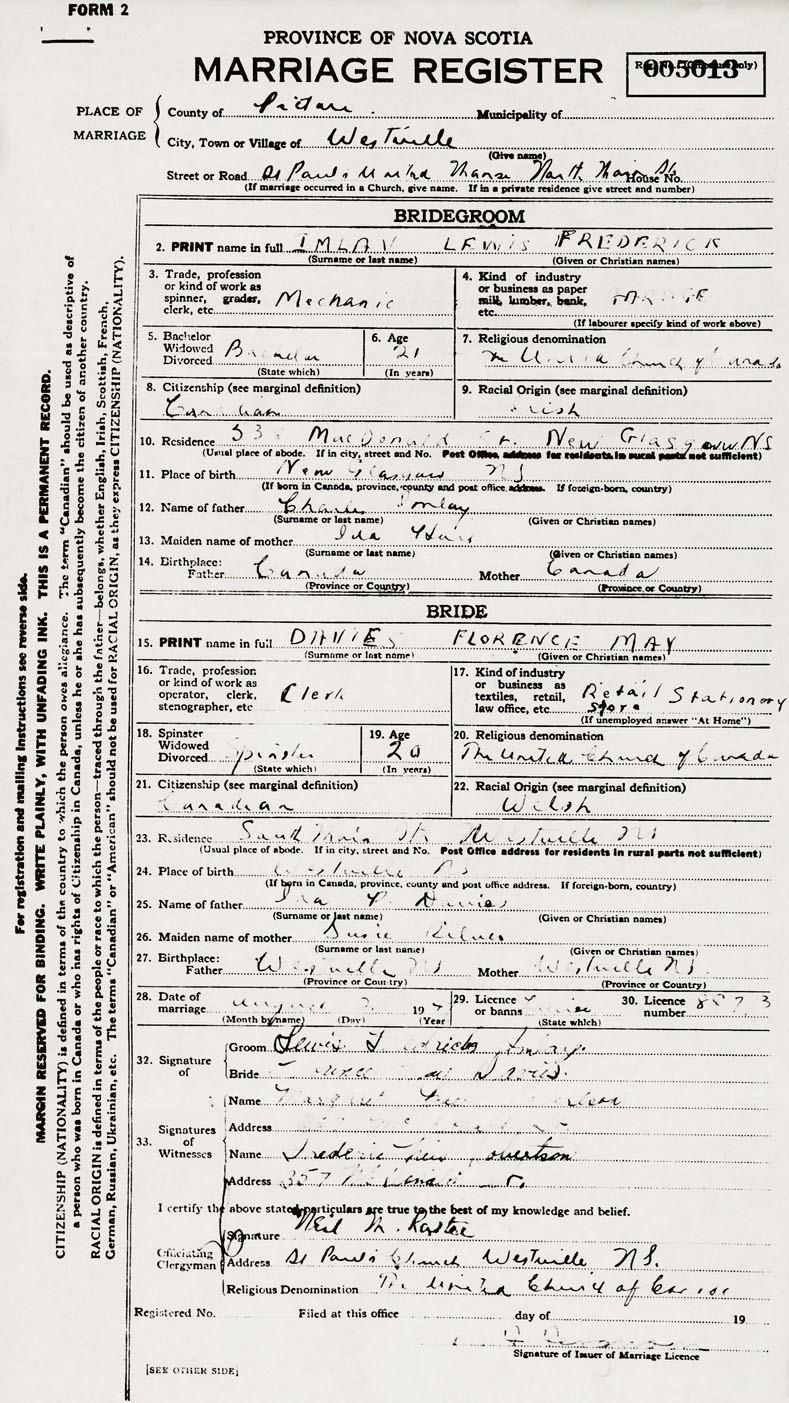 FORM 2
PROVINCE OF NOVA SCOTIA
MARRIAGE REGISTER
005013
PLACE OF MARRIAGE
County of Pictou Municipality of
City, Town or Village of Westville
(Give name)
Street or Road St Paul's United Manse North Main St. House No.
(If marriage occurred in a Church, give name. If in a private residence give street and number)
BRIDEGROOM
2. PRINT name in full IMLAY LEWIS FREDERICK
(Surname or last name) (Given or Christian names)
3. Trade, profession or kind of work as spinner, grader, clerk, etc. Mechanic
4. Kind of industry or business as paper mill, lumber, bank, etc.
(If labourer specify kind of work above)
5. Bachelor Widowed Divorced Bachelor
(State which)
6. Age 21
(In years)
7. Religious denomination The United Church of Canada
8. Citizenship (see marginal definition) Canadian
9. Racial Origin (see marginal definition)
10. Residence MacDonald St. New Glasgow NS
(Usual place of abode. If in city, street and No. Post Office address for residents in rural parts not sufficient)
11. Place of birth New Glasgow NS
(If born in Canada, province, county and post office address. If foreign-born, country)
12. Name of father Charles Imlay
(Surname or last name) (Given or Christian names)
13. Maiden name of mother Ida
(Surname or last name) (Given or Christian names)
14. Birthplace: Father Canada Mother Canada
(Province or Country) (Province or Country)
BRIDE
15. PRINT name in full DAVIES FLORENCE MAY
(Surname or last name) (Given or Christian names)
16. Trade, profession or kind of work as operator, clerk, stenographer, etc Clerk
17. Kind of industry or business as textiles, retail, law office, etc. Retail Stationory Store
(If unemployed answer "At Home")
18. Spinster Widowed Divorced Spinster
(State which)
19. Age 20
(In years)
20. Religious denomination The United Church of Canada
21. Citizenship (see marginal definition) Canadian
22. Racial Origin (see marginal definition) Welsh
23. Residence South Main St. Westville NS
(Usual place of abode. If in city, street and No. Post Office address for residents in rural parts not sufficient)
24. Place of birth Westville NS
(If born in Canada, province, county and post office address. If foreign-born, country)
25. Name of father Davies
(Surname or last name) (Given or Christian names)
26. Maiden name of mother Susie
(Surname or last name) (Given or Christian names)
27. Birthplace: Father Westville NS Mother Westville NS.
(Province or Country) (Province or Country)
28. Date of marriage August 19
(Month by name) (Day) (Year
29. Licence or banns
(State which)
30. Licence number 8573
32. Signature of
Groom Lewis Imlay
Bride Davies.
33. Signatures of Witnesses
Name Margaret
Address
Name
Address 357
I certify the above stated particulars are true to the best of my knowledge and belief.
Officiating Clergyman
Signature Neil M.
Address St Paul's Church Westville N.S.
Religious Denomination The United Church of Canada
Registered No. Filed at this office day of 19
Signature of Issuer of Marriage Licence
[SEE OTHER SIDE]
For registration and mailing instructions see reverse side.
MARGIN RESERVED FOR BINDING. WRITE PLAINLY, WITH UNFADING INK. THIS IS A PERMANENT RECORD.
CITIZENSHIP (NATIONALITY) is defined in terms of the country to which the person owes allegiance. The term "Canadian" should be used as descriptive of
a person who was born in Canada or who has rights of Citizenship in Canada, unless he or she has subsequently become the citizen of another country.
RACIAL ORIGIN is defined in terms of the people or race to which the person—traced through the father—belongs, whether English, Irish, Scottish, French,
German, Russian, Ukrainian, etc. The terms "Canadian" or "American" should not be used for RACIAL ORIGIN, as they express CITIZENSHIP (NATIONALITY).